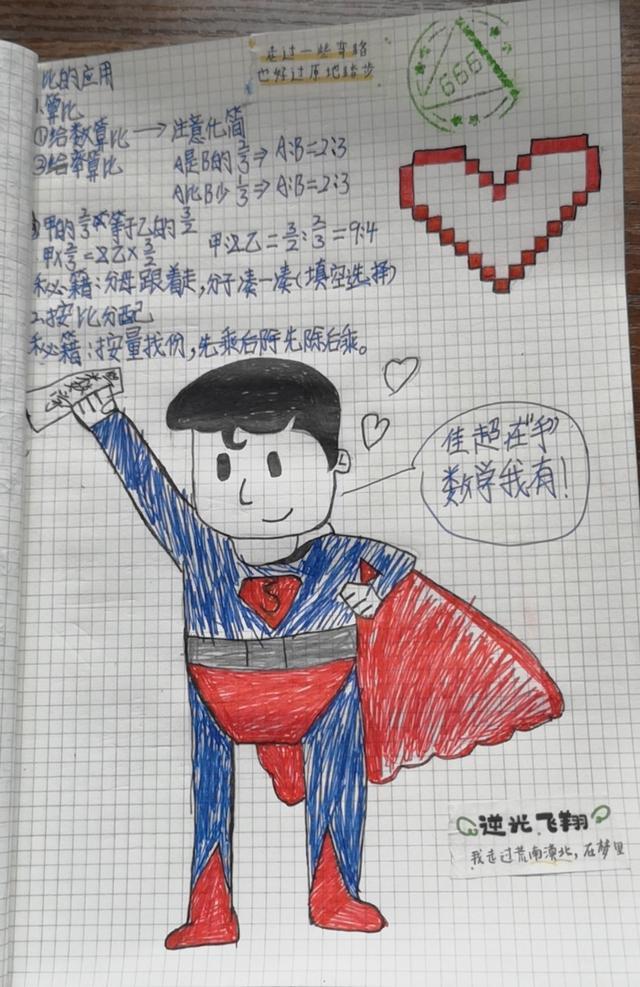 走过一些弯路
也好过原地踏步
666
比的应用
1.算比
①给数算比→注意化简
②给率算比 A是B的2/3⇒A:B=2:3
A比B少1/3⇒A:B=2:3
③甲的2/3等于乙的3/2
甲×2/3=乙×3/2 甲:乙=3/2:2/3=9:4
秘籍:分母跟着走,分子凑一凑(填空选择)
2.按比分配
秘籍:按量找份,先乘后除先除后乘。
佳超在手
数学我有!
S
逆光飞翔
我走过荒南漠北,在梦里